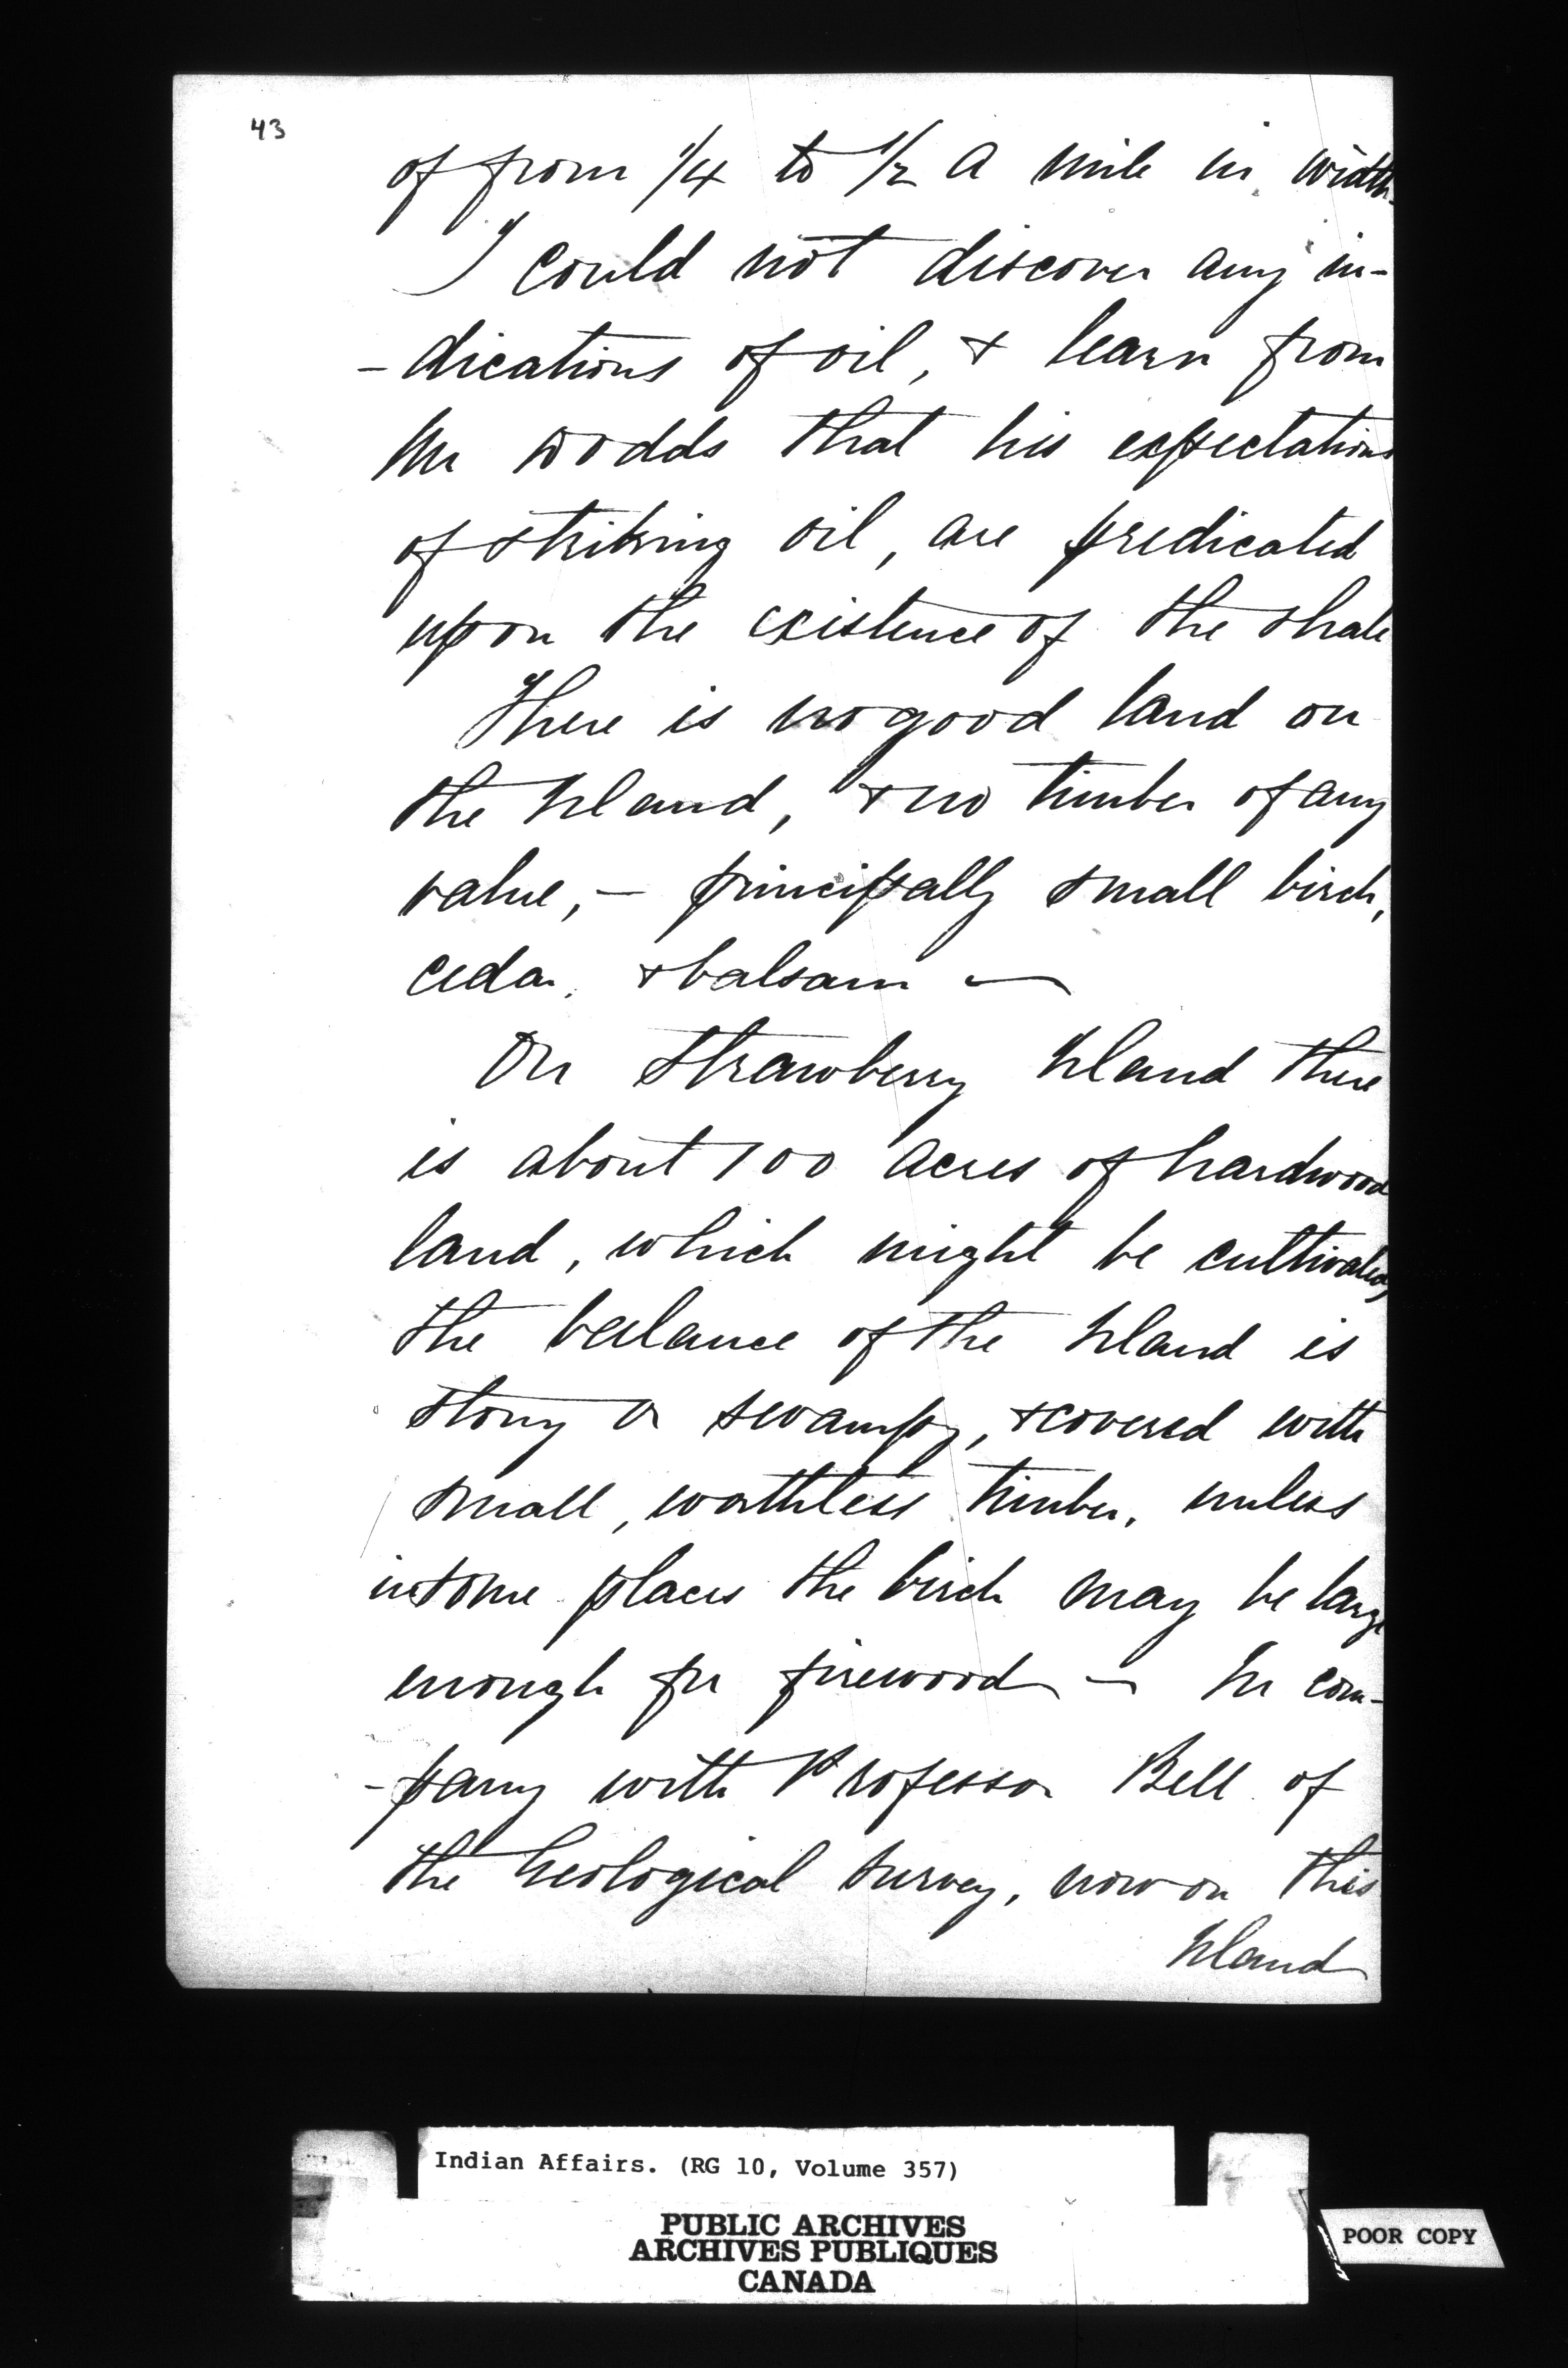 43
of from 1/4 to 1/2 a mile in width.
I could not discover any in-
-dications of oil, & learn from
Mr Dodds that his expectations
of striking oil, are predicated
upon the existence of the shale
There is no good land on
the Island, & no timber of any
value, - principally small birch,
cedar, & balsam -
On Strawberry Island there
is about 100 acres of hardwood
land, which might be cultivated,
the balance of the Island is
stony or swampy, & covered with
small, worthless timber, unless
in some places the birch may be large
enough for firewood - In com-
-pany with Professor Bell of
the Geological Survey, now on this
Island
Indian Affairs. (RG 10, Volume 357)
PUBLIC ARCHIVES
ARCHIVES PUBLIQUES
CANADA
POOR COPY